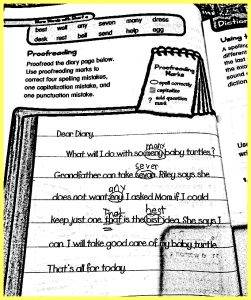 More Words with Short e
best well any seven many dress
desk rest bell send help egg
Proofreading
Proofread the diary page below.
Use proofreading marks to
correct four spelling mistakes,
one capitalization mistake, and
one punctuation mistake.
Proofreading
Marks
spell correctly
capitalize
add question
mark
Diction
Using t
A spelling
different
the last
sound
diction
Dear Diary,
many
What will I do with so meny baby turtles?
seven
Grandfather can take sevan. Riley says she
any
does not want eny! I asked Mom if I could
That best
keep just one. that is the bist idea. She says I
can. I will take good care of my baby turtle.
That's all for today.